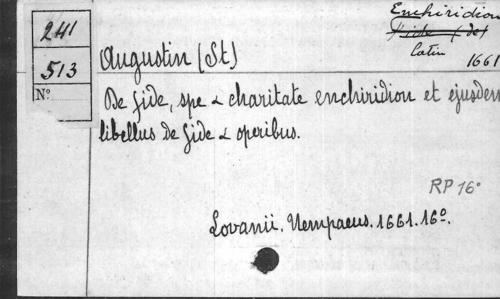 Enchiridion
Fide (de)
latin
1661
241
513
N°
Augustin (St)
De fide, spe & charitate enchiridion et ejusdem
libellus de fide & operibus.
RP 16°
Lovanii. Nempaeus. 1661. 16°.